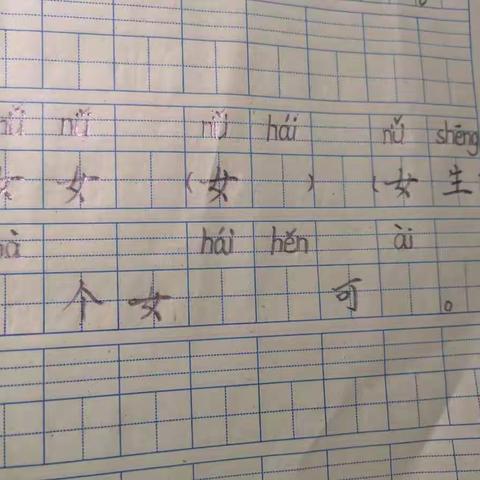 nǚ nǚ nǚ hái nǚ shēng
女 女 (女 ) (女 生
hái hěn ài
个 女 可 。